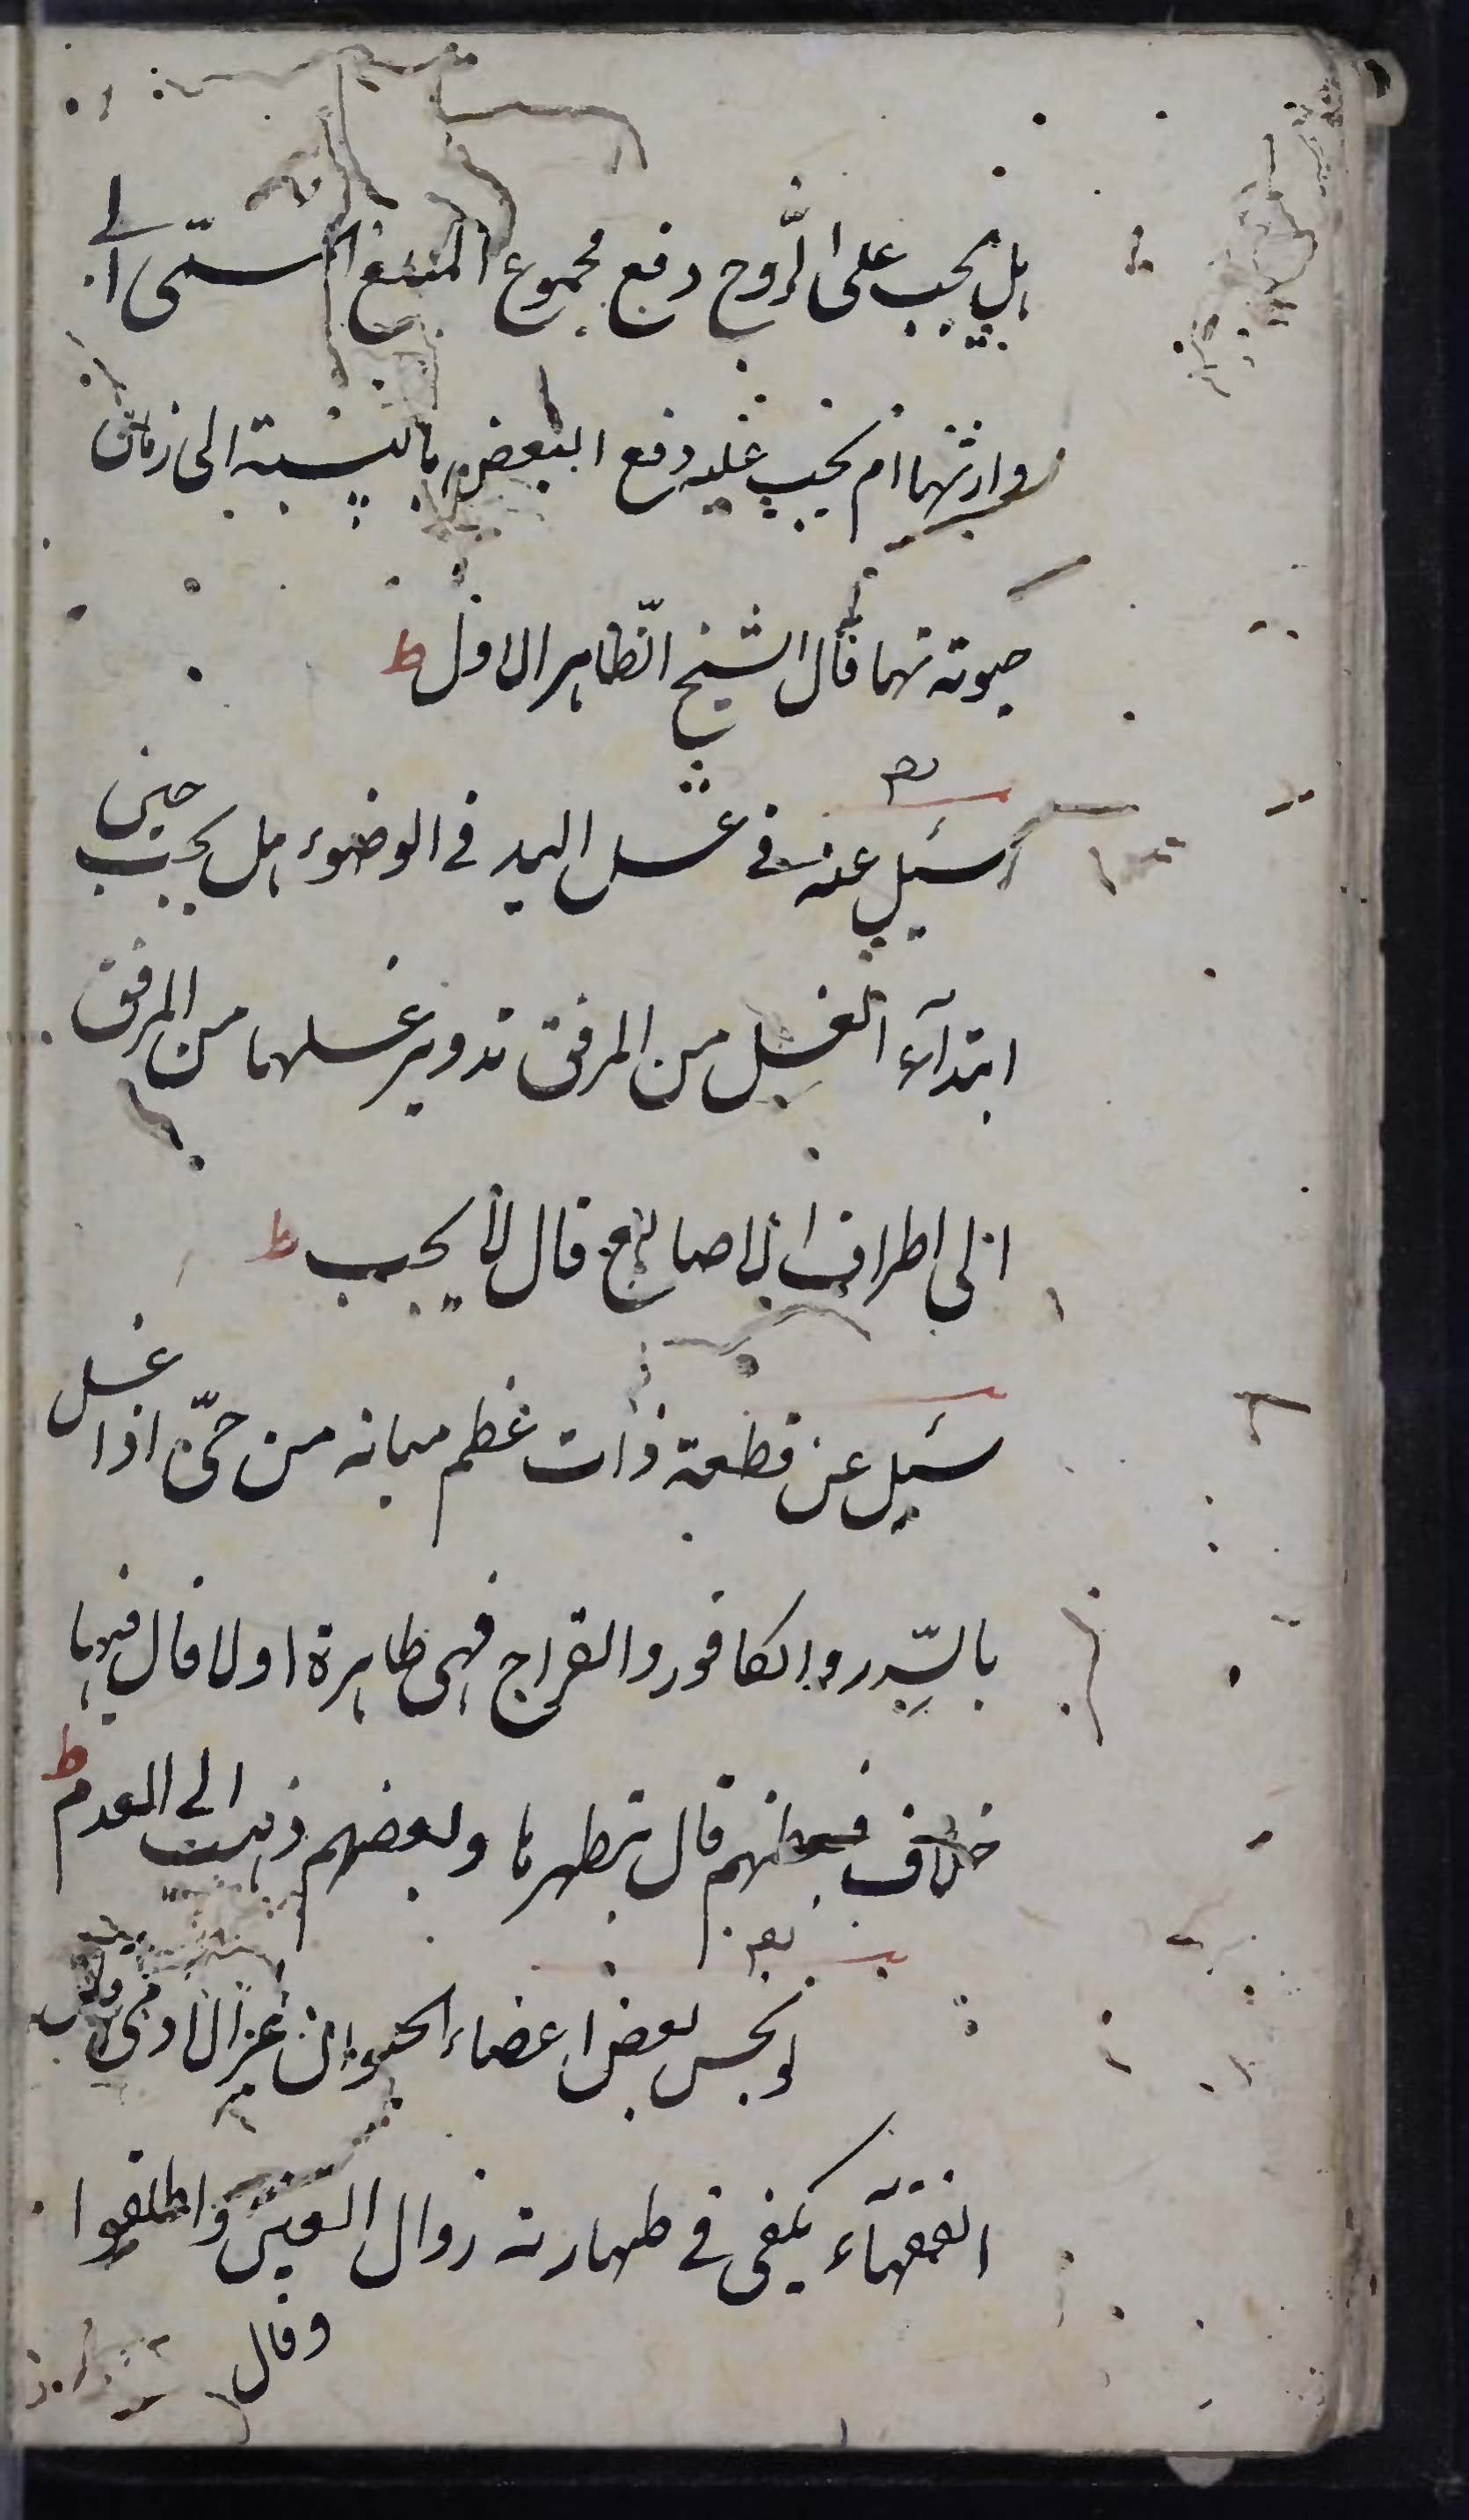 هل يجب على الزّوج دفع مجموع المبلغ المسمّى الى
وارثهما ام يجب عليه دفع البعض بالنسبة الى زمان
حيوتهما قال الشيخ الظّاهر الاول ط
سئيل عنه في غسل اليد في الوضوء هل يجب حين
ابتدآء الغسل من المرفق تدوير غسلها من المرفق
الى اطراف الاصابع قال لا يجب ط
سئيل عن قطعة ذات عظم مبانه من حىّ اذا غسل
بالسّدر والكافور والقراح فهى طاهرة اولا قال فيها
خلاف فبعضهم قال بتطهرها وبعضهم ذهب الى العدم ط
لو نجس بعض اعضاء الحيوان غير الادمى
الفقهآء يكفى في طهارته زوال العين واطلقوا
وقال